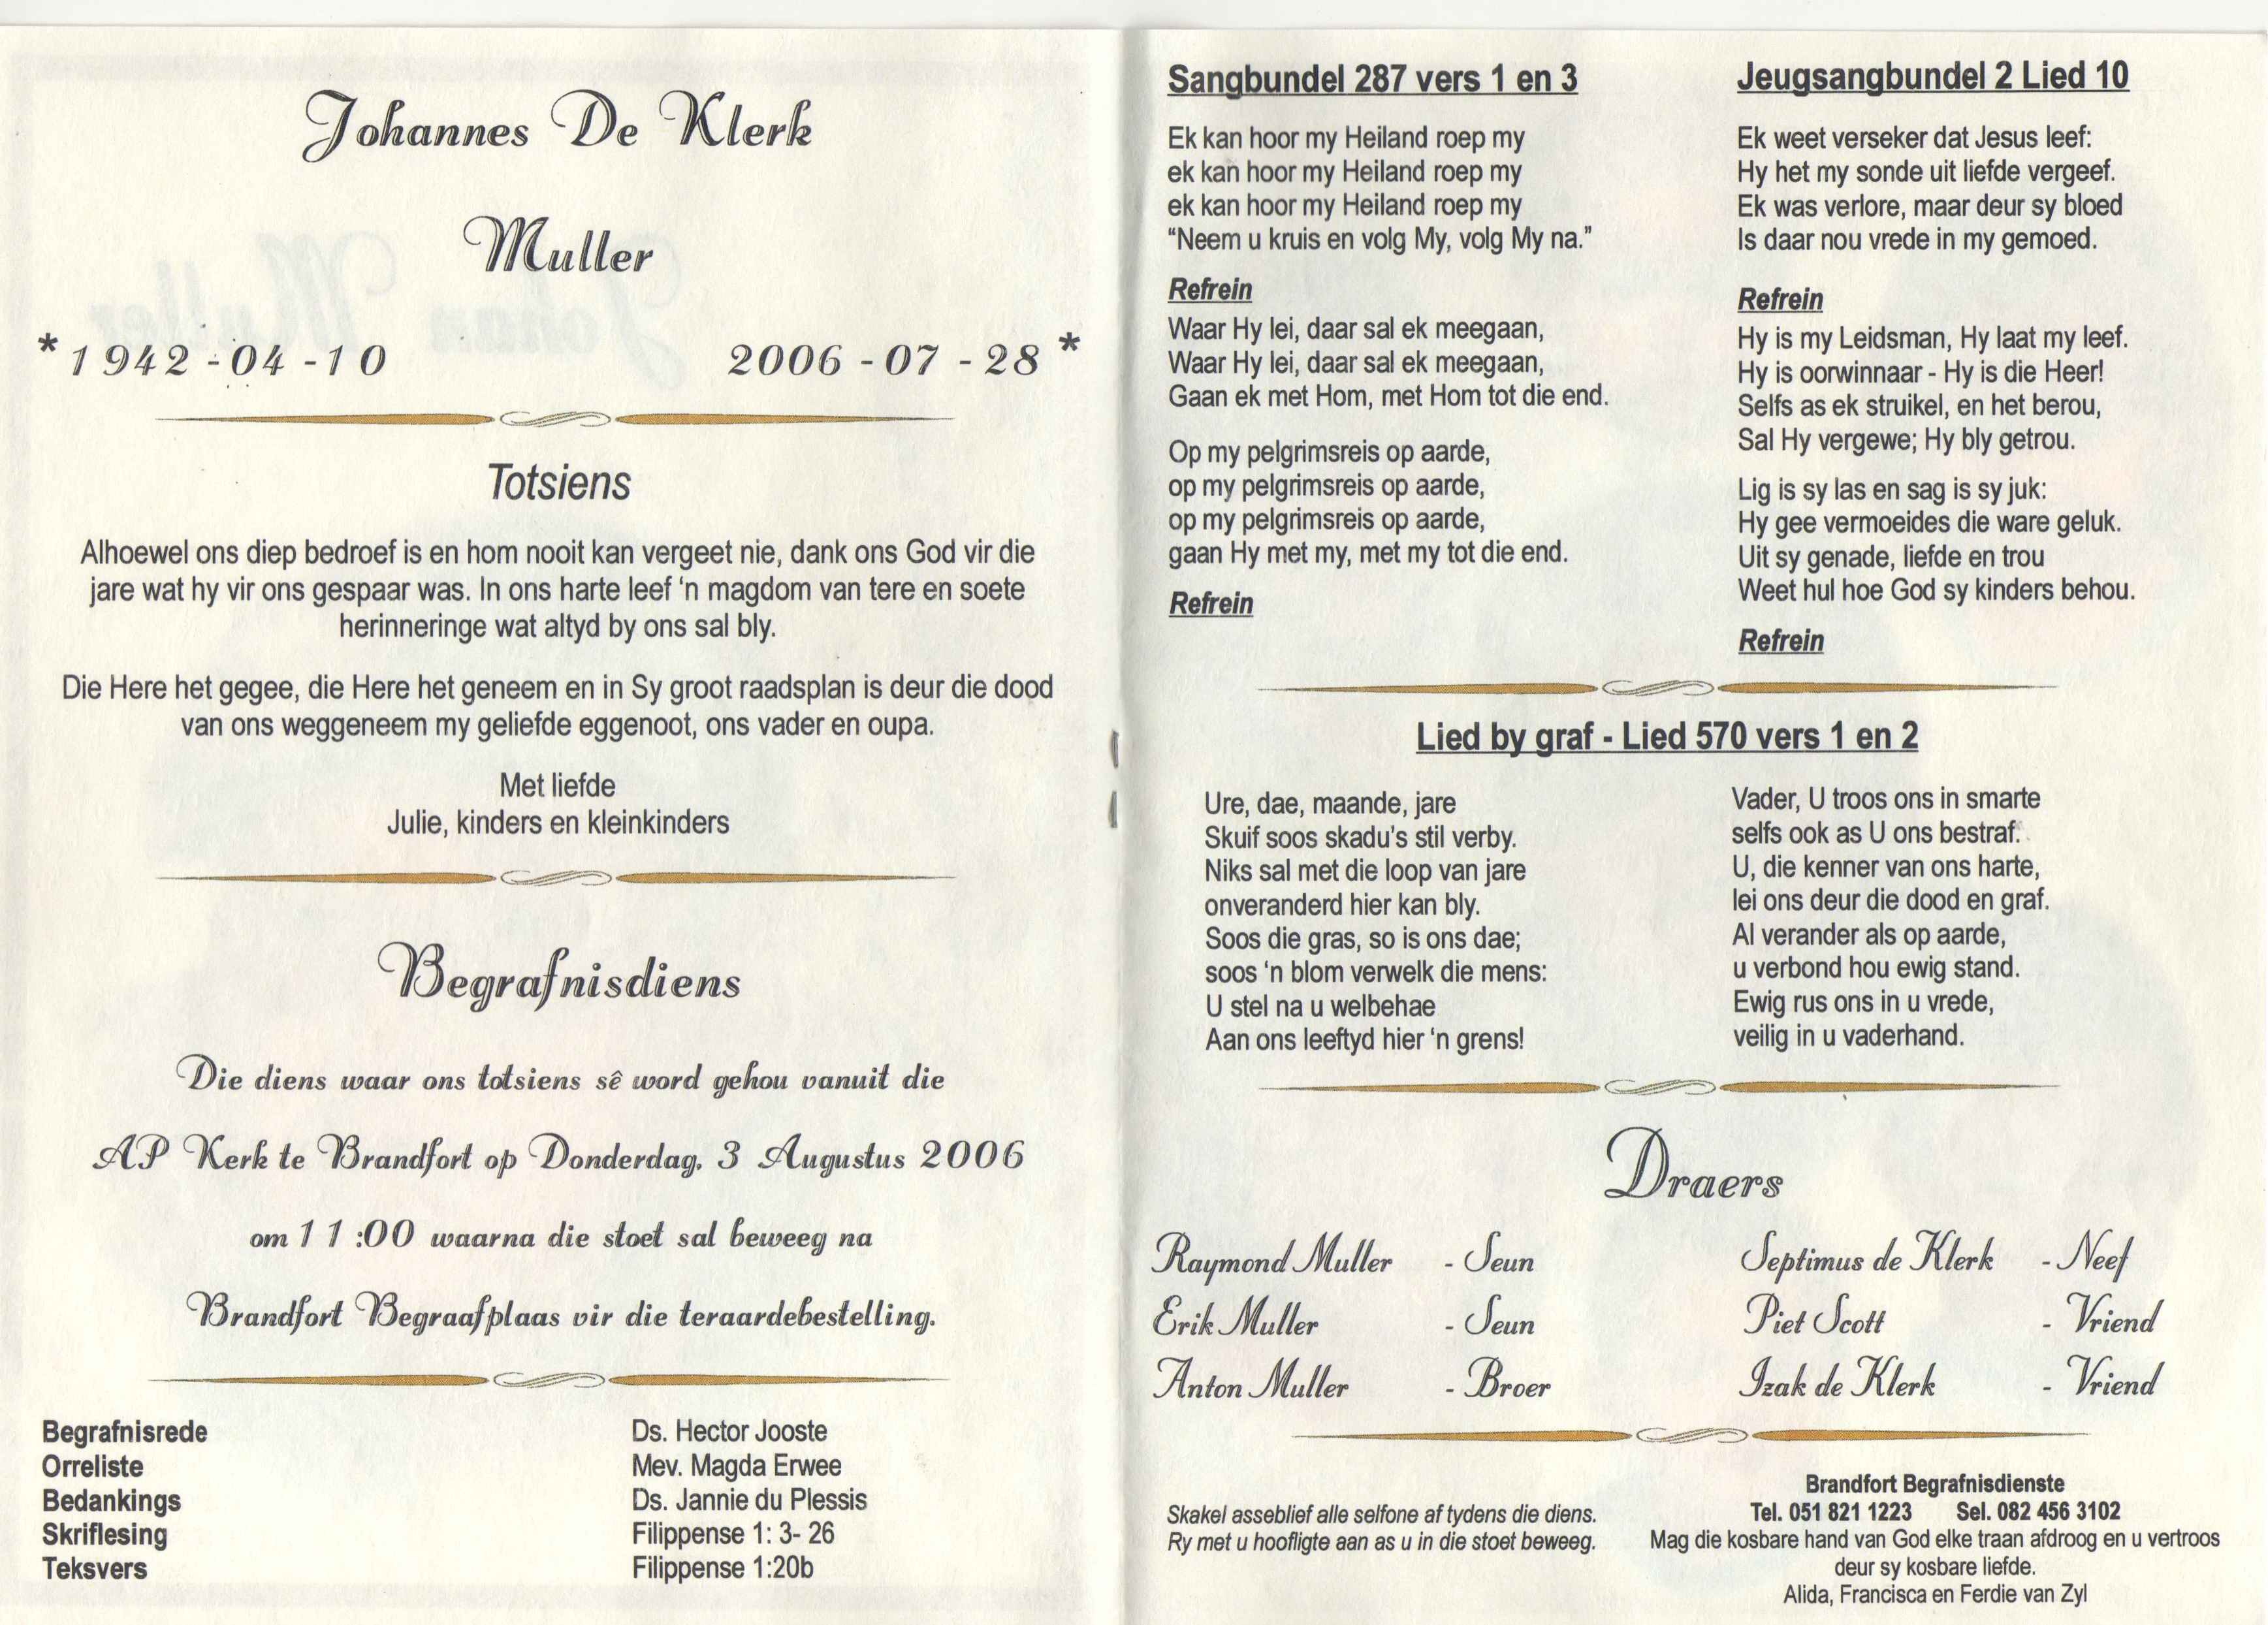 Johannes De Klerk
Muller
* 1942 - 04 - 10 2006 - 07 - 28 *
Totsiens
Alhoewel ons diep bedroef is en hom nooit kan vergeet nie, dank ons God vir die
jare wat hy vir ons gespaar was. In ons harte leef 'n magdom van tere en soete
herinneringe wat altyd by ons sal bly.
Die Here het gegee, die Here het geneem en in Sy groot raadsplan is deur die dood
van ons weggeneem my geliefde eggenoot, ons vader en oupa.
Met liefde
Julie, kinders en kleinkinders
Begrafnisdiens
Die diens waar ons totsiens sê word gehou vanuit die
AP Kerk te Brandfort op Donderdag, 3 Augustus 2006
om 11:00 waarna die stoet sal beweeg na
Brandfort Begraafplaas vir die teraardebestelling.
Begrafnisrede Ds. Hector Jooste
Orreliste Mev. Magda Erwee
Bedankings Ds. Jannie du Plessis
Skriflesing Filippense 1: 3- 26
Teksvers Filippense 1:20b
Sangbundel 287 vers 1 en 3
Ek kan hoor my Heiland roep my
ek kan hoor my Heiland roep my
ek kan hoor my Heiland roep my
“Neem u kruis en volg My, volg My na.”
Refrein
Waar Hy lei, daar sal ek meegaan,
Waar Hy lei, daar sal ek meegaan,
Gaan ek met Hom, met Hom tot die end.
Op my pelgrimsreis op aarde,
op my pelgrimsreis op aarde,
op my pelgrimsreis op aarde,
gaan Hy met my, met my tot die end.
Refrein
Jeugsangbundel 2 Lied 10
Ek weet verseker dat Jesus leef:
Hy het my sonde uit liefde vergeef.
Ek was verlore, maar deur sy bloed
Is daar nou vrede in my gemoed.
Refrein
Hy is my Leidsman, Hy laat my leef.
Hy is oorwinnaar - Hy is die Heer!
Selfs as ek struikel, en het berou,
Sal Hy vergewe; Hy bly getrou.
Lig is sy las en sag is sy juk:
Hy gee vermoeides die ware geluk.
Uit sy genade, liefde en trou
Weet hul hoe God sy kinders behou.
Refrein
Lied by graf - Lied 570 vers 1 en 2
Ure, dae, maande, jare
Skuif soos skadu's stil verby.
Niks sal met die loop van jare
onveranderd hier kan bly.
Soos die gras, so is ons dae;
soos 'n blom verwelk die mens:
U stel na u welbehae
Aan ons leeftyd hier 'n grens!
Vader, U troos ons in smarte
selfs ook as U ons bestraf.
U, die kenner van ons harte,
lei ons deur die dood en graf.
Al verander als op aarde,
u verbond hou ewig stand.
Ewig rus ons in u vrede,
veilig in u vaderhand.
Draers
Raymond Muller - Seun
Erik Muller - Seun
Anton Muller - Broer
Septimus de Klerk - Neef
Piet Scott - Vriend
Izak de Klerk - Vriend
Skakel asseblief alle selfone af tydens die diens.
Ry met u hoofligte aan as u in die stoet beweeg.
Brandfort Begrafnisdienste
Tel. 051 821 1223 Sel. 082 456 3102
Mag die kosbare hand van God elke traan afdroog en u vertroos
deur sy kosbare liefde.
Alida, Francisca en Ferdie van Zyl